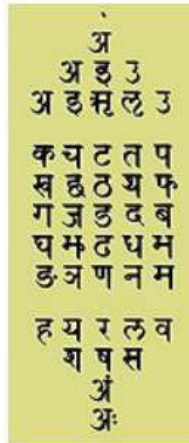 अ
अ इ उ
अ इ ॠ ऌ उ
क च ट त प
ख छ ठ य फ
ग ज ड द ब
घ झ ढ ध म
ङ ञ ण न म
ह य र ल व
श ष स
अं
अः